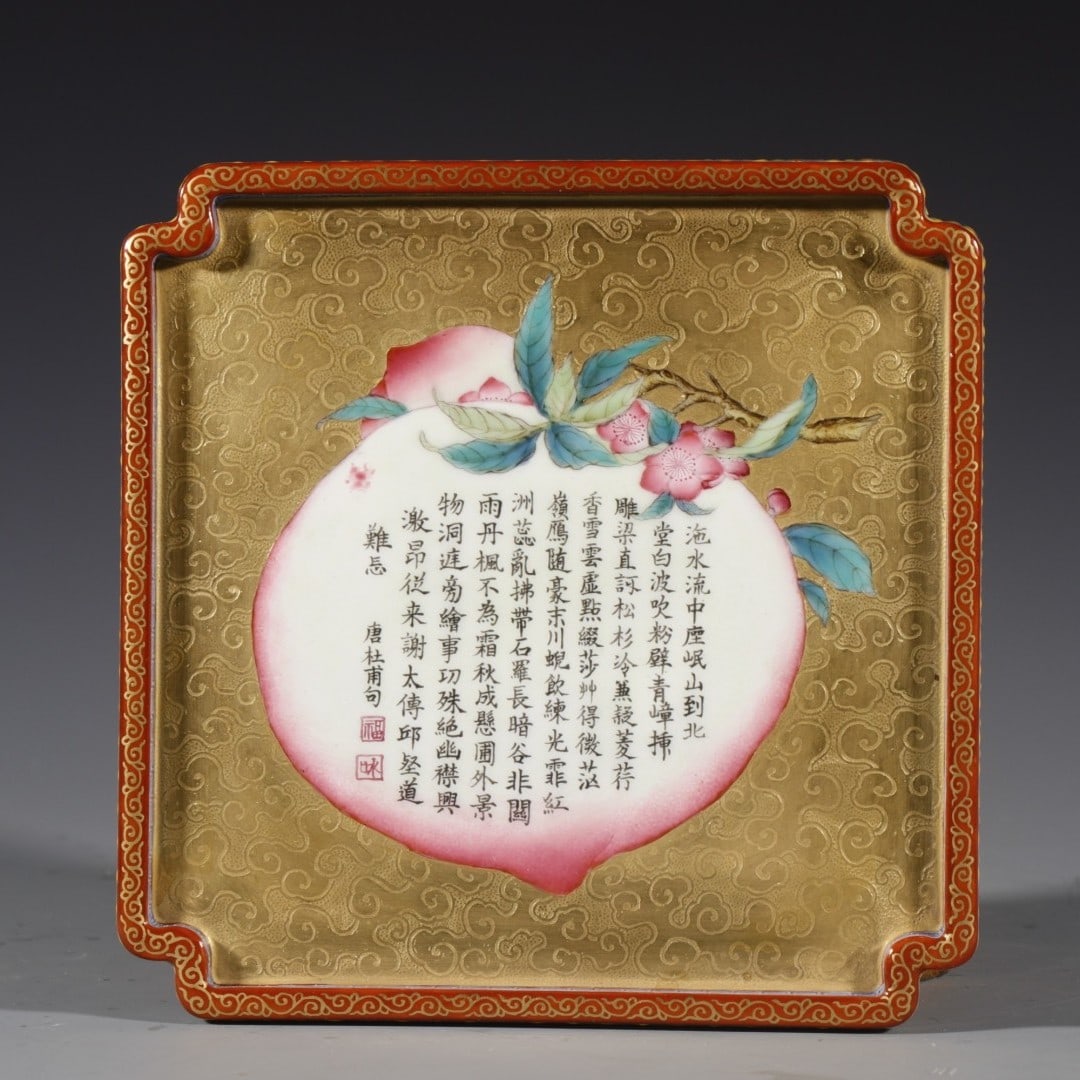 沲水流中座岷山到北
堂白波吹粉壁青嶂揷
雕梁直訝松杉冷兼疑菱荇
香雪雲虛點綴莎艸得微茫
嶺鴈随豪末川蜺飲練光霏紅
洲蕊亂拂帶石羅長暗谷非關
雨丹楓不為霜秋成懸圃外景
物洞庭旁繪事功殊絕幽襟興
激昂從来謝太傅邱壑道
難忘
唐杜甫句
福